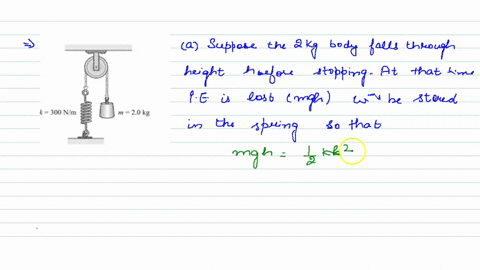 ⇒
(a) Suppose the 2kg body falls through
height h before stopping. At that time
P.E is lost (mgh) will be stored
in the spring so that
k = 300 N/m
m = 2.0 kg
mgh = 1/2 kh²